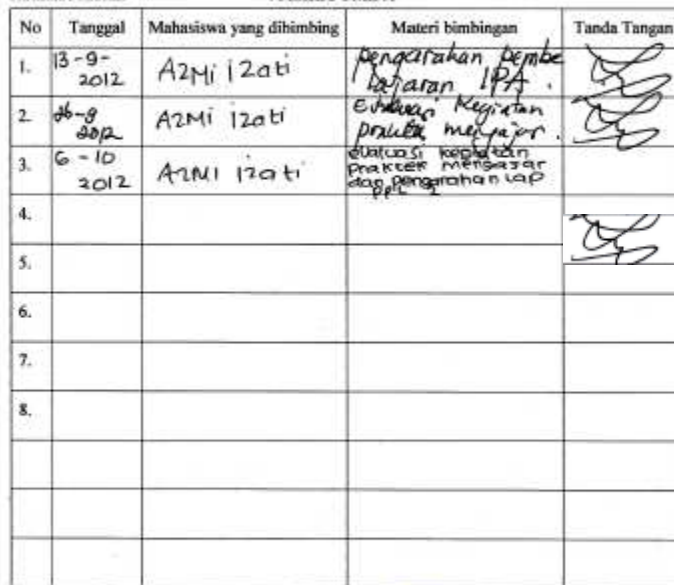 No Tanggal Mahasiswa yang dibimbing Materi bimbingan Tanda Tangan
1. 13-9-2012 Azmi izati pengarahan pembelajaran IPA.
2. 26-9 2012 AzMi izati Evaluasi Kegiatan praktek mengajar.
3. 6-10 2012 AzMI izati evaluasi kegiatan praktek mengajar dan pengarahan lap PPL 2
4.
5.
6.
7.
8.